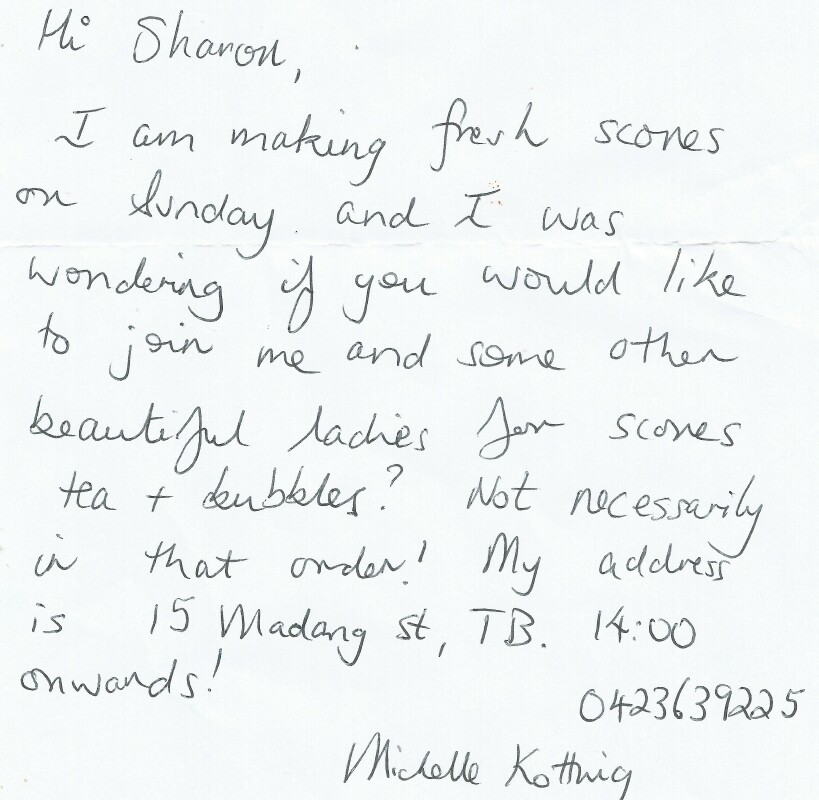 Hi Sharon,
I am making fresh scones
on Sunday and I was
wondering if you would like
to join me and some other
beautiful ladies for scones
tea + bubbles? Not necessarily
in that order! My address
is 15 Madang st, TB. 14:00
onwards!
0423639225
Michelle